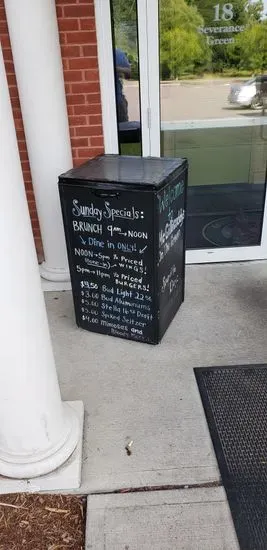 18
Severance
Green
Welcome
Sunday Specials:
BRUNCH 9am→NOON
↓ Dine in ONLY! ↓
NOON→5pm ½ Priced
(Bone-in) WINGS!
5pm→11pm ½ Priced
BURGERS!
$9.50 Bud Light 22oz
$3.00 Bud Aluminiums
$5.00 Stella 16oz Draft
$5.00 Spiked Seltzer
$4.00 Mimosas and
Bloody